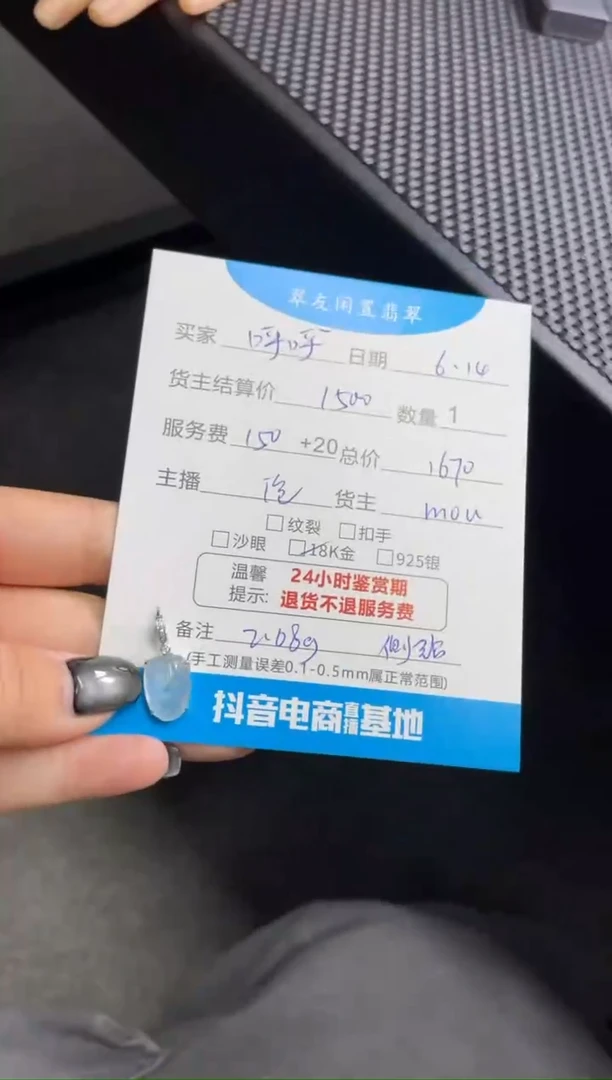 翠友闲置翡翠
买家 呼呼 日期 6.14
货主结算价 1500 数量 1
服务费 150 +20 总价 1670
主播 货主 mou
□纹裂 □扣手
□沙眼 □18K金 □925银
温馨 24小时鉴赏期
提示: 退货不退服务费
备注 2.08g 侧钻
(手工测量误差0.1-0.5mm属正常范围)
抖音电商直播基地